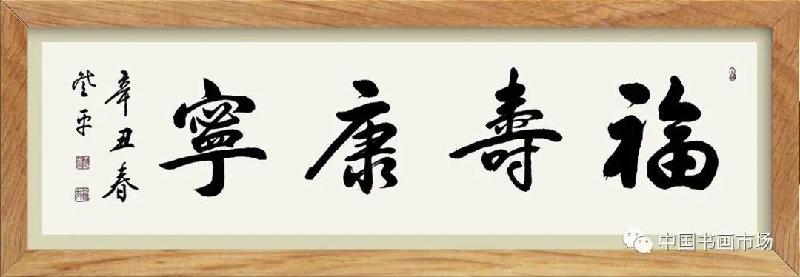 福壽康寧
辛丑春
中国书画市场